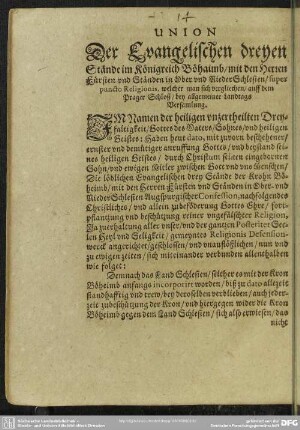 14
UNION
Der Evangelischen dreyen
Stände im Königreich Böhaimb / mit den Herren
Fürsten und Ständen in Ober und Nieder Schlesien / super
puncto Religionis, welcher man sich verglichen / auff dem
Prager Schloß / bey allgemeiner Landtags
Versamlung.
IM Namen der heiligen unzertheilten Drey-
faltigkeit / Gottes des Vaters / Sohnes / und heiligen
Geistes: Haben heut dato, mit zuvorn beschehener /
ernster und demütiger anruffung Gottes / und beystand seines
heiligen Geistes / durch Christum seinen eingebornen
Sohn / und ewigen Mitler zwischen Gott und uns Menschen /
Die löblichen Evangelischen drey Stände der Krohn Bö-
heimb / mit den Herren Fürsten und Ständen in Ober- und
Nieder Schlesien Augspurgischer Confession, nachfolgendes
Christliches / und allein zubeförderung Gottes Ehre / fort-
pflantzung und beschützung reiner ungefälschter Religion,
Zu zuerhaltung aller unser / und der gantzen Posteritet See-
len Heyl und Seligkeit / gemeynes Religionis Defension-
werck angerichtet / geschlossen / und unauflößlichen / nun und
zu ewigen zeiten / sich miteinander verbunden allenthalben
wie folget:
Demnach das Land Schlesien / seither es mit der Kron
Böheimb anfangs incorporirt worden / biß zu dato allezeit
standhafftig und trew / bey derselben verblieben / auch jeder-
zeit zubeschützung der Kron / und hiergegen wider die Kron
Böheimb gegen dem Land Schlesien / sich also erwiesen / das
nicht